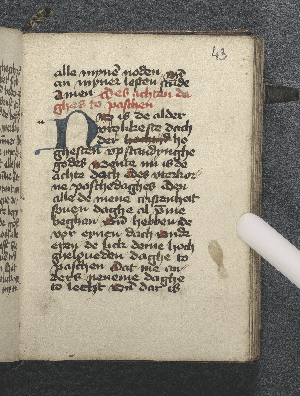 43
alle mynen noden vnd
an myner lesten stunde
Amen Des achten da
ghes to paschen
Dyt is de alder
vrolikeste dach
der ho
ghesten vpstandynghe
godes wente nu is de
achte dach des
ne paschedaghes Den
alle de mene cristenheit
seuen daghe al
beghan vnd hebben de
vor eynen dach vnde
eten de sick deme hoch
gheloueden daghe to
paschen Dat me an
ders nenerne daghe
to lecht vnd dat is